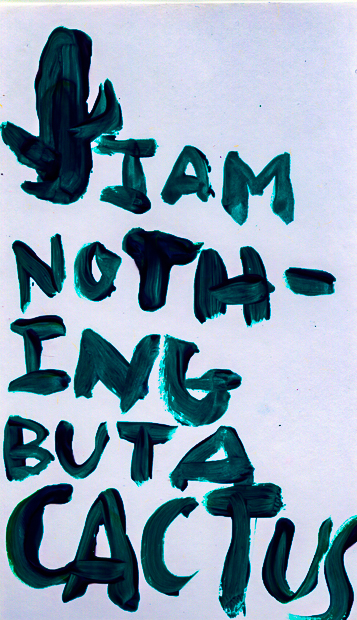 I AM
NOTH-
ING
BUT A
CACTUS